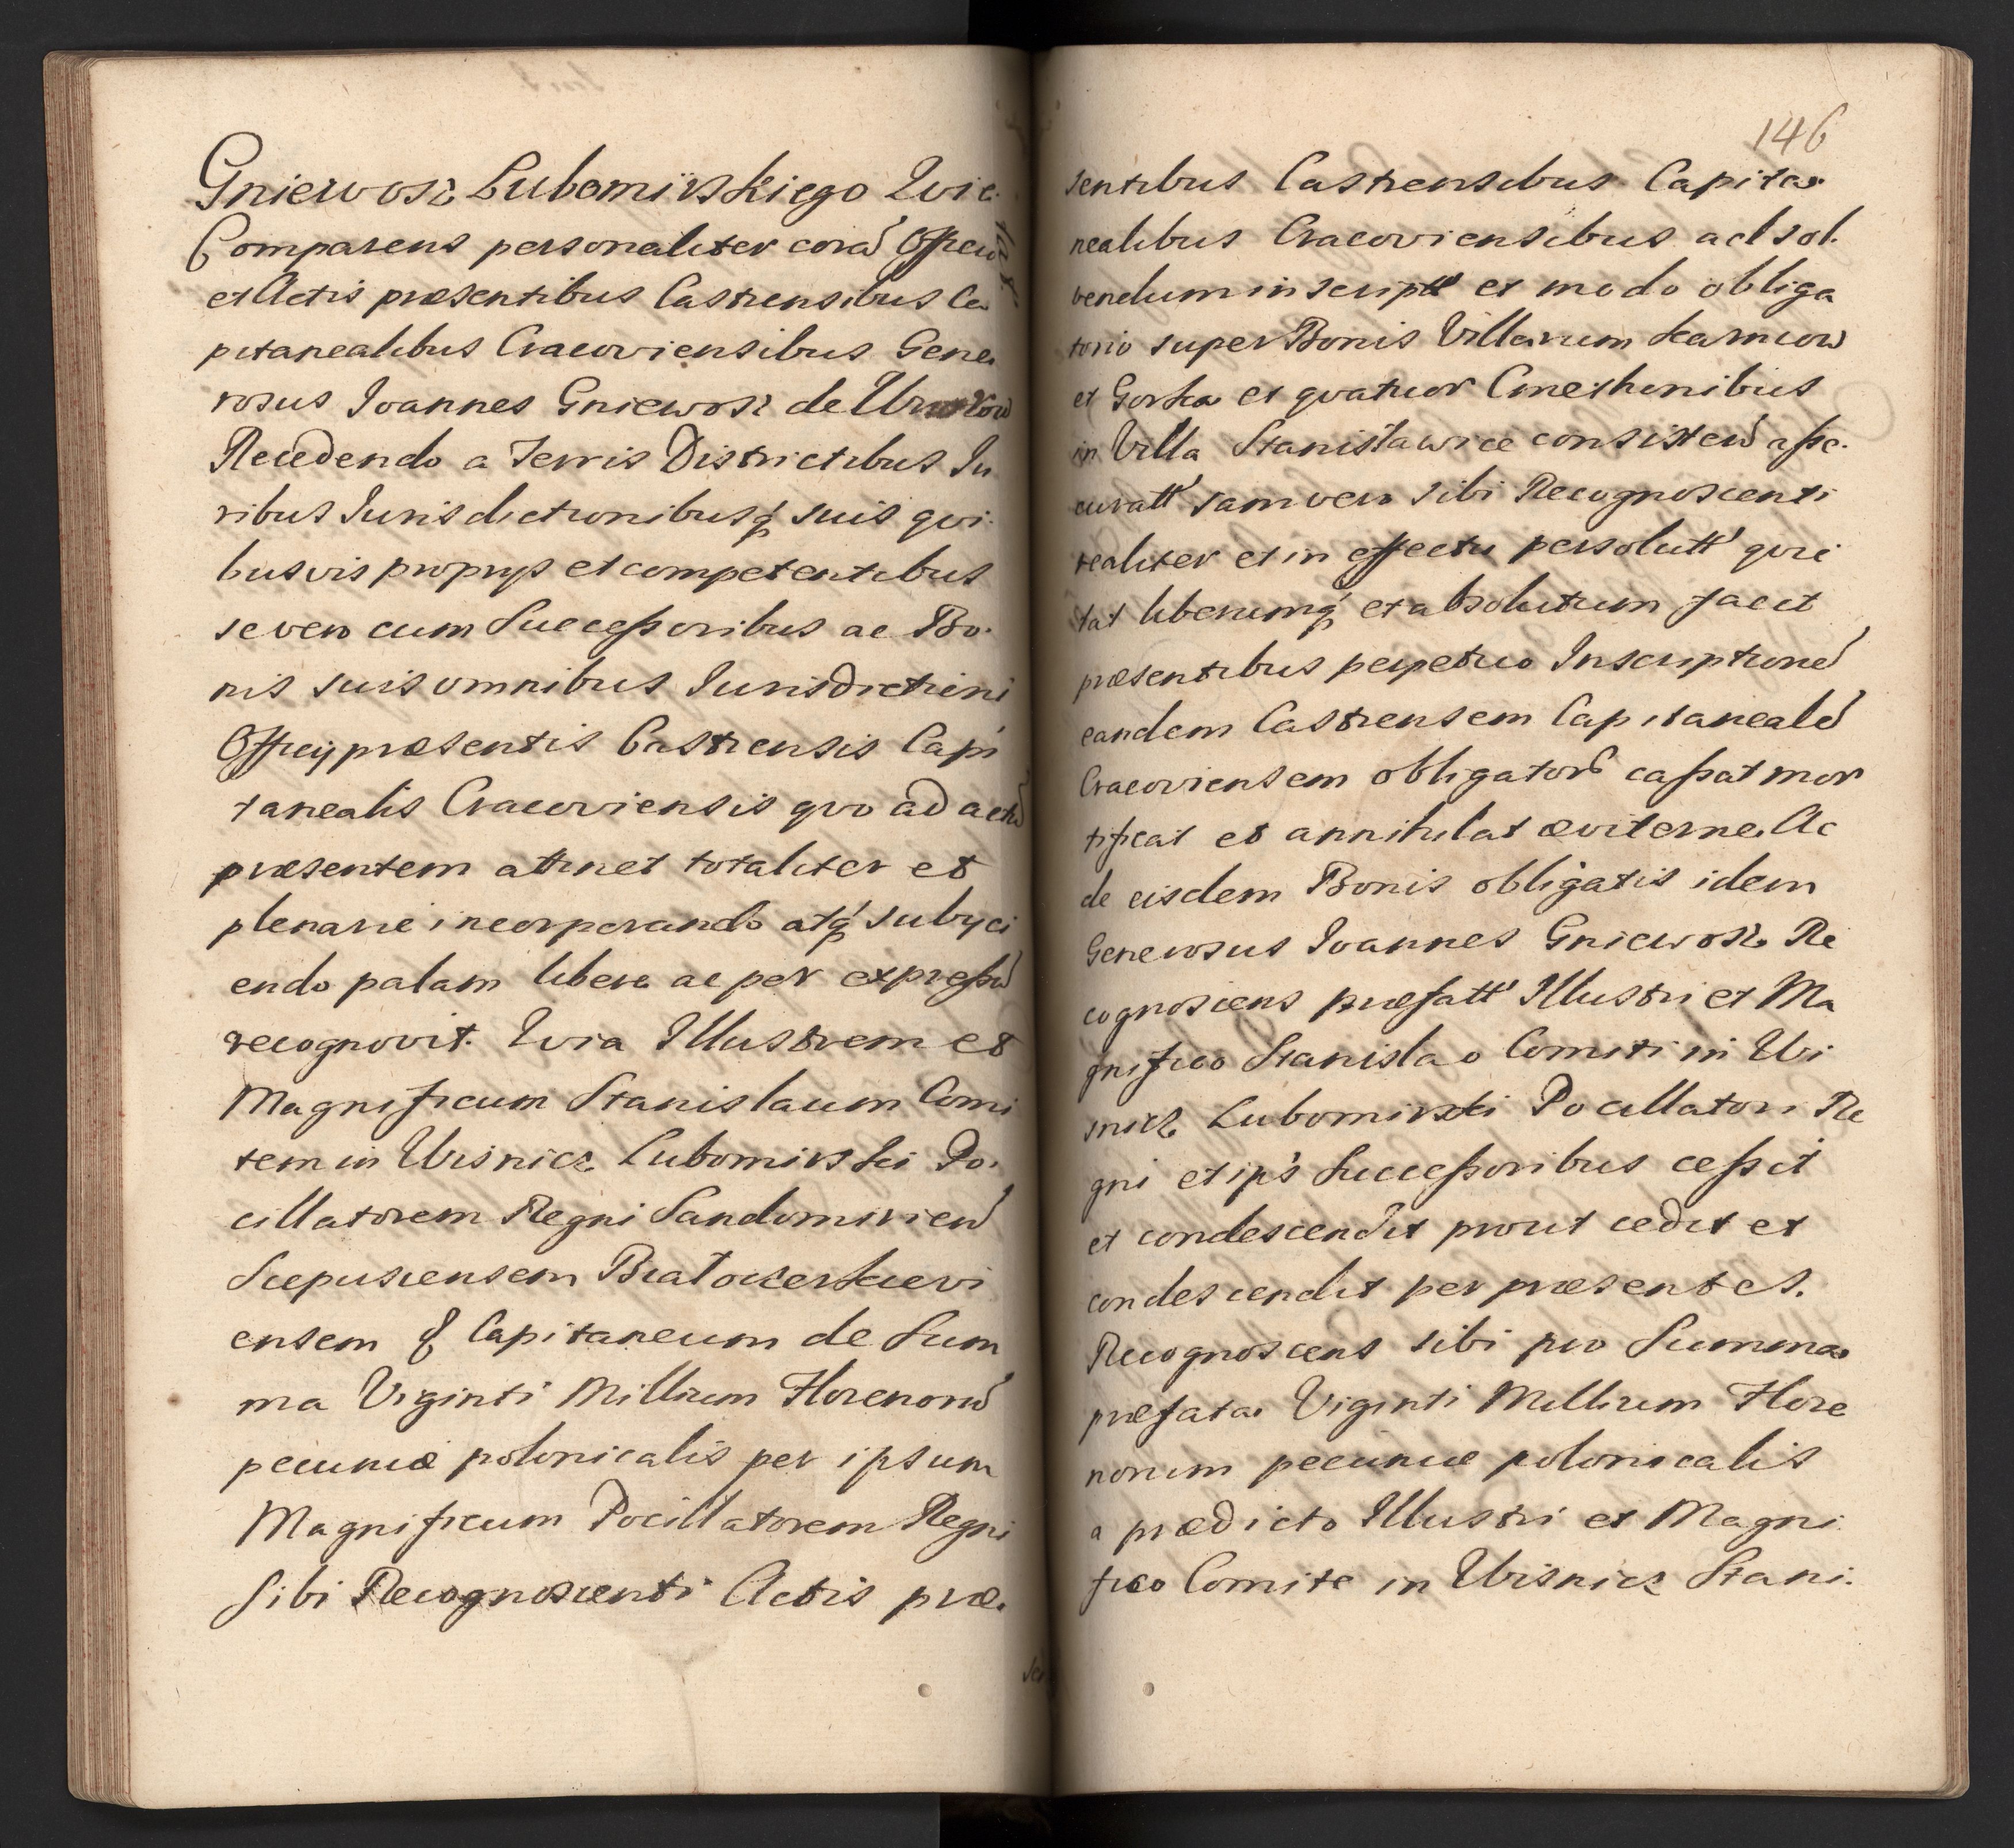 Gniewosz Lubomirskiego Qvie.
Comparens personaliter corā Offciō
et Actis præsentibus Castrensibus Ca
pitanealibus Cracoviensibus Gene
rosus Joannes Gniewosz de
Recedendo a Terris Districtibus Ju
ribus Jurisdictionibusq suis qvi.
busvis proprijs et competentibus
se vero cum Successoribus ac Bo.
nis suis omnibus Jurisdictioni
Officij præsentis Castrensis Capi
tanealis Cracoviensis qvo ad actū
præsentem attinet totaliter et
plenarie incorporando atq subijci
endo palam libere ac per expressū
recognovit. Qvia Illustrem et
Magnificum Stanislaum Comi
tem in Wisnicz Lubomirski Po.
cillatorem Regni Sandomirien
Scepusiensem Bialocerkievi
ensem & Capitaneum de Sum
ma Viginti Millium Florenorū
pecuniæ polonicalis per ipsum
Magnificum Pocillatorem Regni
Sibi Recognoscenti Actis præ.
146
sentibus Castrensibus Capita
nealibus Cracoviensibus ad sol.
vendum inscriptt et modo obliga
torio super Bonis Villarum Karniow
et Gorka et qvatuor Cmethonibus
in Villa Stanisławice consisten asse.
curatt iam vero sibi Recognoscenti
realiter et in effectu persolutt qvie
tat liberumq et absolutum facit
præsentibus perpetuo Inscriptionē
eandem Castrensem Capitanealē
Cracoviensem obligator cassat mor
tificat et annihilat æviterne. Ac
de eisdem Bonis obligatis idem
Generosus Joannes Gniewosz Re
cognoscens præfatt Illustri et Ma
gnifico Stanislao Comiti in Wi
snicz Lubomirski Pocillatori Re
gni et ips Successoribus cessit
et condescendit prout cedit et
condescendit per præsentes.
Recognoscens sibi pro Summa
præfata Viginti Millium Flore
norum pecuniæ polonicalis
a prædicto Illustri et Magni
fico Comite in Wisnicz Stani.